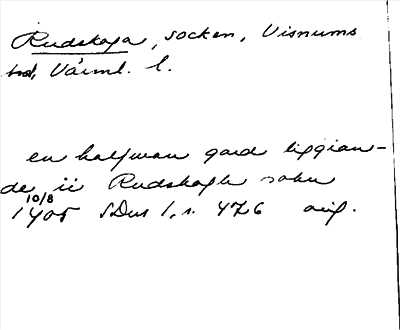 Rudskoga, socken, Visnums
hd, Värml. l.
en halfwan gard liggian-
de ii Rudskogh sokn
10/8
1405 SDns 1, s. 476 orig.